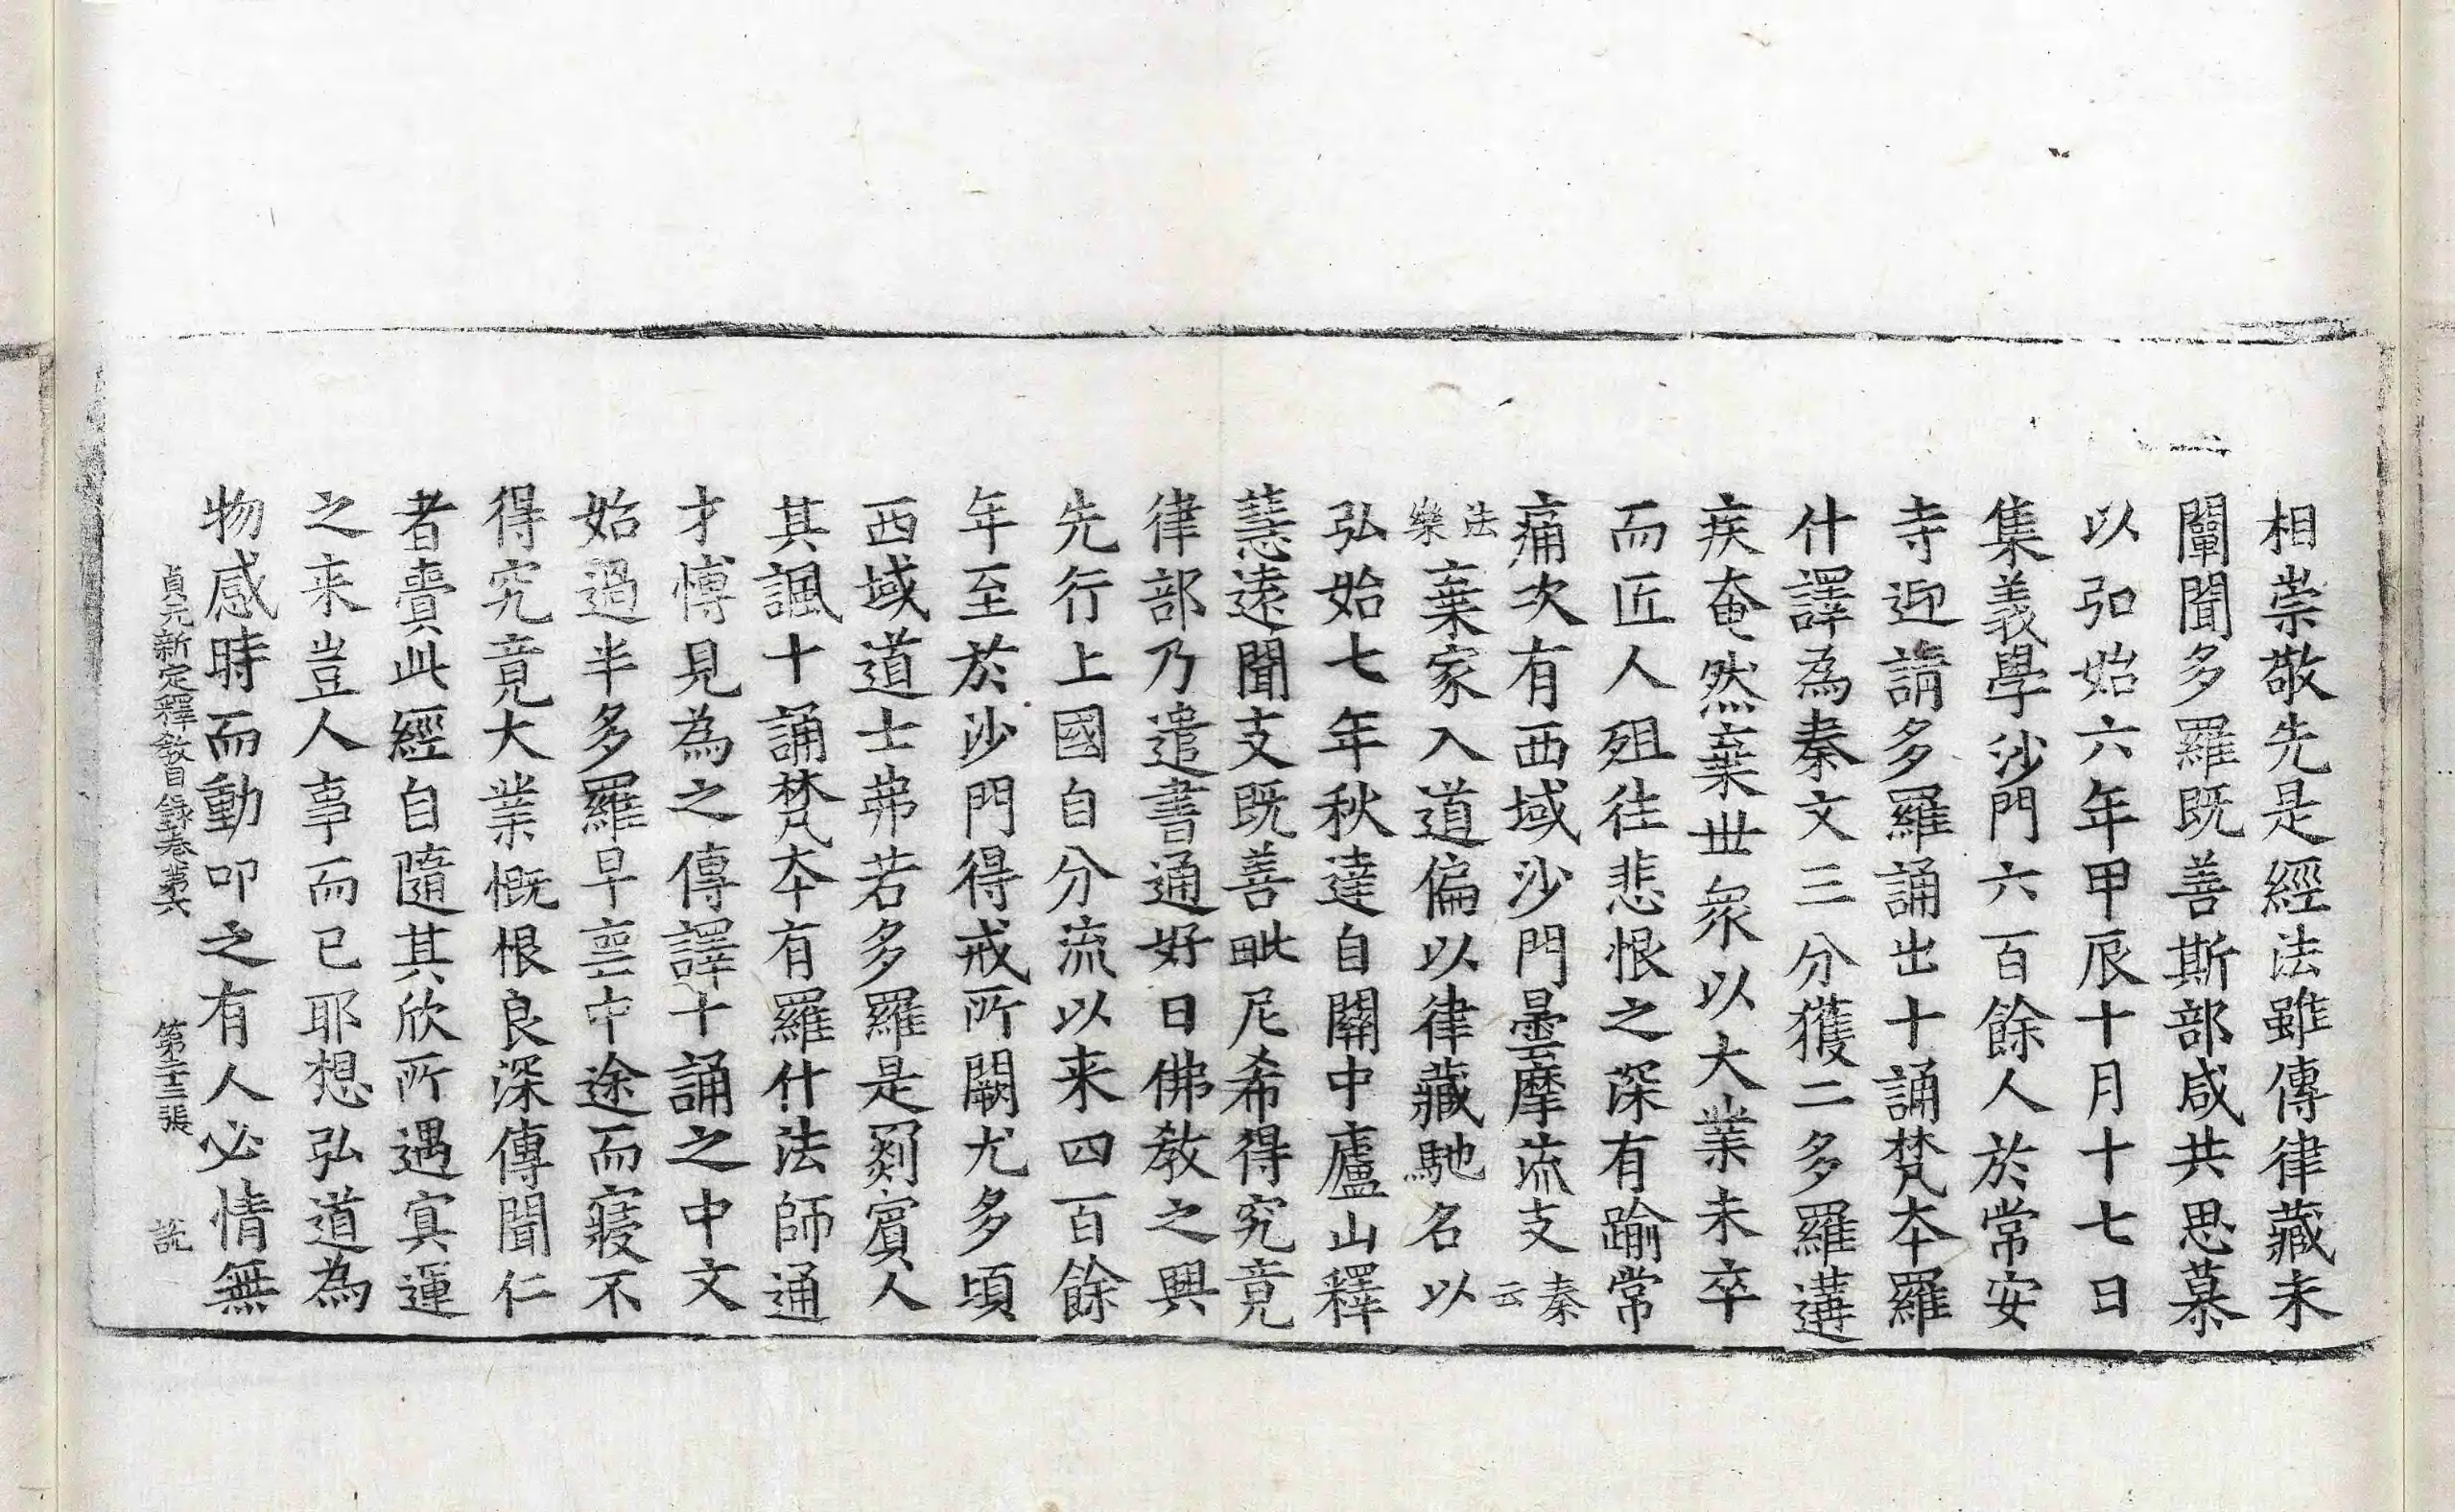 相崇敬先是經法雖傳律藏未
闡聞多羅既善斯部咸共思慕
以弘始六年甲辰十月十七日
集義學沙門六百餘人於常安
寺迎請多羅誦出十誦梵本羅
什譯為秦文三分獲二多羅遘
疾奄然棄世眾以大業未卒
而匠人殂往悲恨之深有踰常
痛次有西域沙門曇摩流支秦云
法樂棄家入道偏以律藏馳名以
弘始七年秋達自關中廬山釋
慧遠聞支既善毗尼希得究竟
律部乃遣書通好曰佛教之興
先行上國自分流以来四百餘
年至於沙門得戒所闕尤多頃
西域道士弗若多羅是罽賓人
其諷十誦梵本有羅什法師通
才博見為之傳譯十誦之中文
始過半多羅早喪中途而寢不
得究竟大業慨恨良深傳聞仁
者賷此經自隨其欣所遇冥運
之来豈人事而已耶想弘道為
物感時而動叩之有人必情無
貞元新定釋教目錄卷第六 第二十三張 説